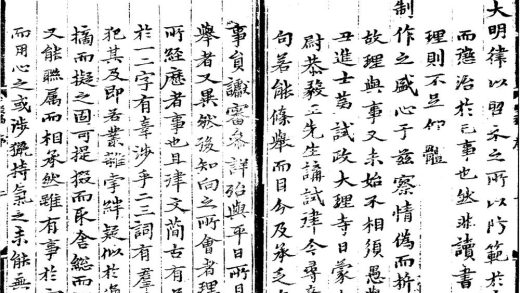 大明律以習之所以防範於
而懲治於已事也然非讀書
理則不足仰體
制作之盛心于兹察情偽而折
故理與事又未始不相須愚
丑進士試政大理寺日蒙
尉恭毅王先生講試律令尋
句若能條舉而目分及承乏
事貟讞審叅詳殆與平日所
舉者又異然後知向之所會者理
所經歷者事也且律文簡古有
於一二字有辜涉乎二三詞有羣
犯其及即若業離掌絆疑似於
摘而擬之固可提掇而取舍總而
又能聯属而相承然雖有事於
而用心之或涉獵持氣之未能無